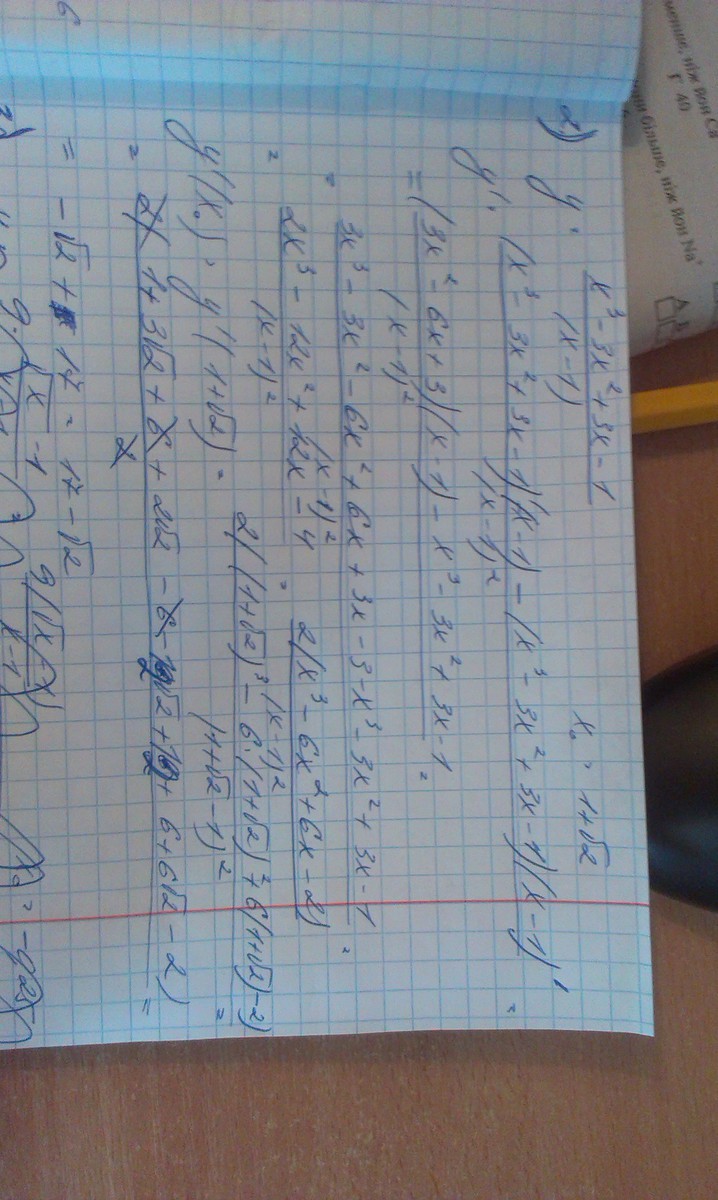 2) y = (x³ - 3x² + 3x - 1)/(x-1) x₀ = 1+√2
y' = ((x³ - 3x² + 3x - 1)'(x-1) - (x³ - 3x² + 3x - 1)(x-1)')/(x-1)² =
= ((3x² - 6x + 3)(x-1) - x³ - 3x² + 3x - 1)/(x-1)² =
= (3x³ - 3x² - 6x² + 6x + 3x - 3 - x³ - 3x² + 3x - 1)/(x-1)² =
= (2x³ - 12x² + 12x - 4)/(x-1)² = 2(x³ - 6x² + 6x - 2)/(x-1)²
y'(x₀) = y'(1+√2) = 2((1+√2)³ - 6·(1+√2)² + 6(1+√2) - 2)/(1+√2-1)² =
= 2(1 + 3√2 + 6 + 2√2 - 6 - 12√2 + 12 + 6 + 6√2 - 2)/2 =
= -√2 + 17 = 17 - √2
ніж йон Cs
Г 40
більше, ніж йон Na⁺
А
6